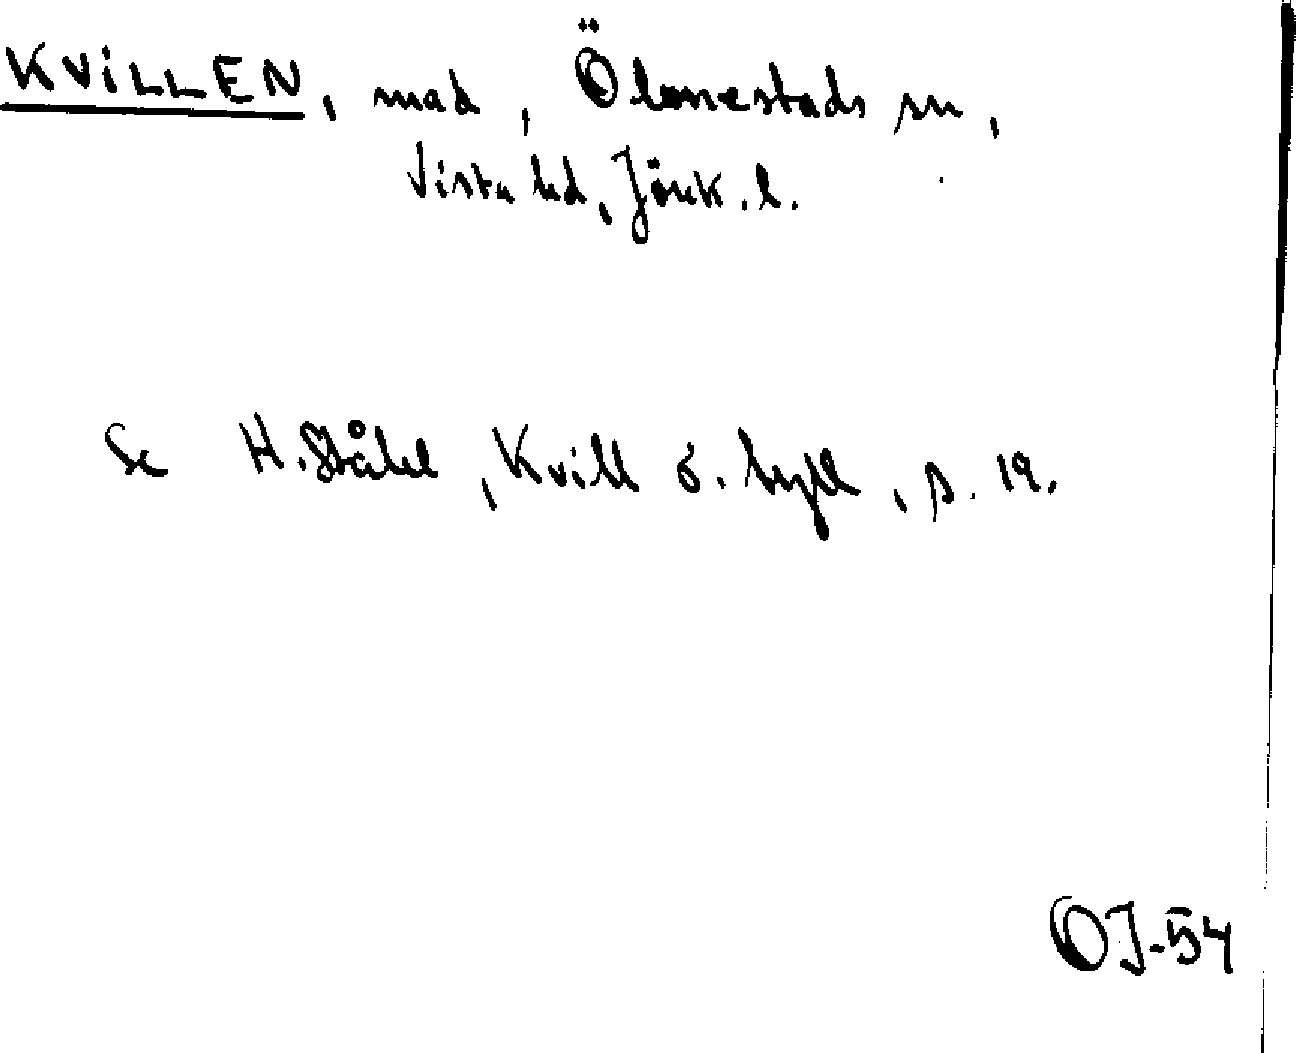 KVILLEN, mad, Ölmestads sn,
Vista hd, Jönk. l.
Se H. Ståhl, Kvill o. hyll, s. 19.
OJ-54